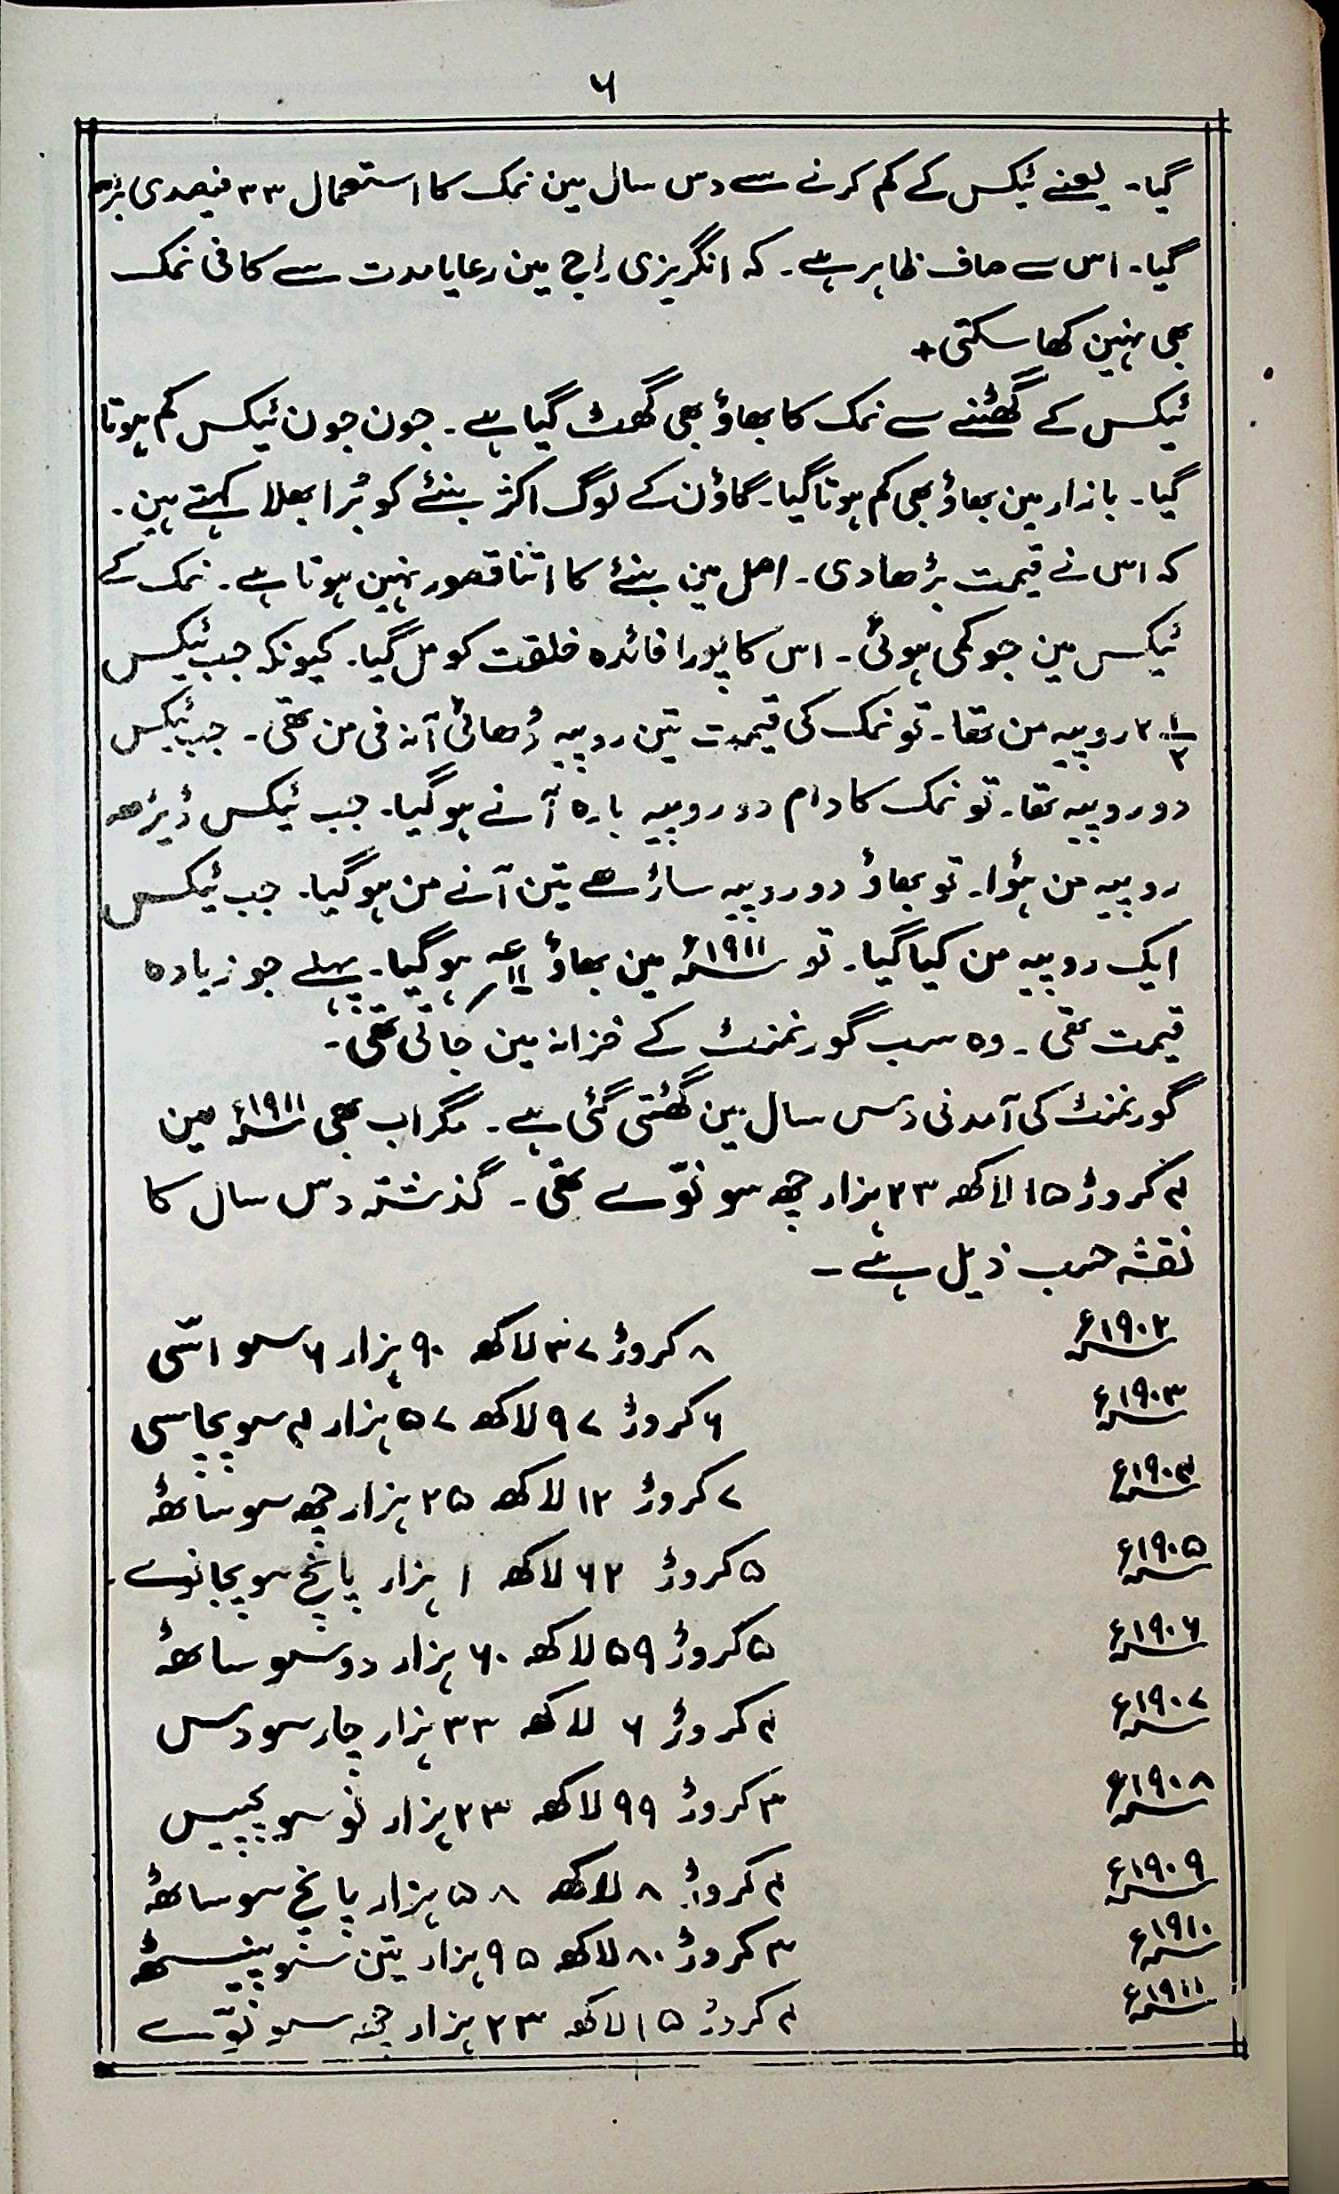 ۶
گیا۔ یعنے ٹیکس کے کم کرنے سے دس سال مین نمک کا استعمال ۳۳ فیصدی بڑھ
گیا۔ اس سے صاف ظاہر ہے۔ کہ انگریزی راج مین رعایا مدت سے کافی نمک
بھی نہین کھا سکتی+
ٹیکس کے گھٹنے سے نمک کا بھاؤ بھی گھٹ گیا ہے۔ جون جون ٹیکس کم ہوتا
گیا۔ بازار مین بھاؤ بھی کم ہوتا گیا۔ گاؤن کے لوگ اکثر بنئے کو بُرا بھلا کہتے ہین۔
کہ اس نے قیمت بڑھا دی۔ اصل مین بنئے کا اتنا قصور نہین ہوتا ہے۔ نمک کے
ٹیکس مین جو کمی ہوئی۔ اس کا پورا فائدہ خلقت کو مل گیا۔ کیونکہ جب ٹیکس
۲½ روپیہ من تھا۔ تو نمک کی قیمت تین روپیہ ڈھائی آنہ فی من تھی۔ جب ٹیکس
دو روپیہ تھا۔ تو نمک کا دام دو روپیہ بارہ آنے ہو گیا۔ جب ٹیکس ڈیڑھ
روپیہ من ہؤا۔ تو بھاؤ دو روپیہ ساڑھے تین آنے من ہو گیا۔ جب ٹیکس
ایک روپیہ من کیا گیا۔ تو ۱۹۱۱؁ء مین بھاؤ ہو گیا۔ پہلے جو زیادہ
قیمت تھی۔ وہ سب گورنمنٹ کے خزانہ مین جاتی تھی۔
گورنمنٹ کی آمدنی دس سال مین گھٹتی گئی ہے۔ مگر اب بھی ۱۹۱۱؁ء مین
۴ کروڑ ۱۵ لاکھ ۲۳ ہزار چھ سو نوّے تھی۔ گذشتہ دس سال کا
نقشہ حسب ذیل ہے۔
۱۹۰۲؁ء ۸ کروڑ ۳۷ لاکھ ۹۰ ہزار ۶ سو اسّی
۱۹۰۳؁ء ۶ کروڑ ۹۷ لاکھ ۵۷ ہزار ۴ سو پچاسی
۱۹۰۴؁ء ۷ کروڑ ۱۲ لاکھ ۲۵ ہزار چھ سو ساٹھ
۱۹۰۵؁ء ۵ کروڑ ۶۲ لاکھ ۱ ہزار پانچ سو پچانوے
۱۹۰۶؁ء ۵ کروڑ ۵۹ لاکھ ۶۰ ہزار دو سو ساٹھ
۱۹۰۷؁ء ۴ کروڑ ۶ لاکھ ۳۳ ہزار چار سو دس
۱۹۰۸؁ء ۳ کروڑ ۹۹ لاکھ ۲۳ ہزار نو سو پچیس
۱۹۰۹؁ء ۴ کروڑ ۸ لاکھ ۵۸ ہزار پانچ سو ساٹھ
۱۹۱۰؁ء ۳ کروڑ ۸۰ لاکھ ۹۵ ہزار تین سو پینسٹھ
۱۹۱۱؁ء ۴ کروڑ ۱۵ لاکھ ۲۳ ہزار چھ سو نوّے